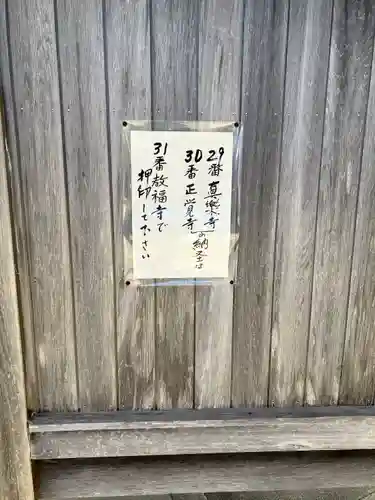 29番真楽寺
30番正覚寺」の納圣は
31番教福寺で
押印して下さい